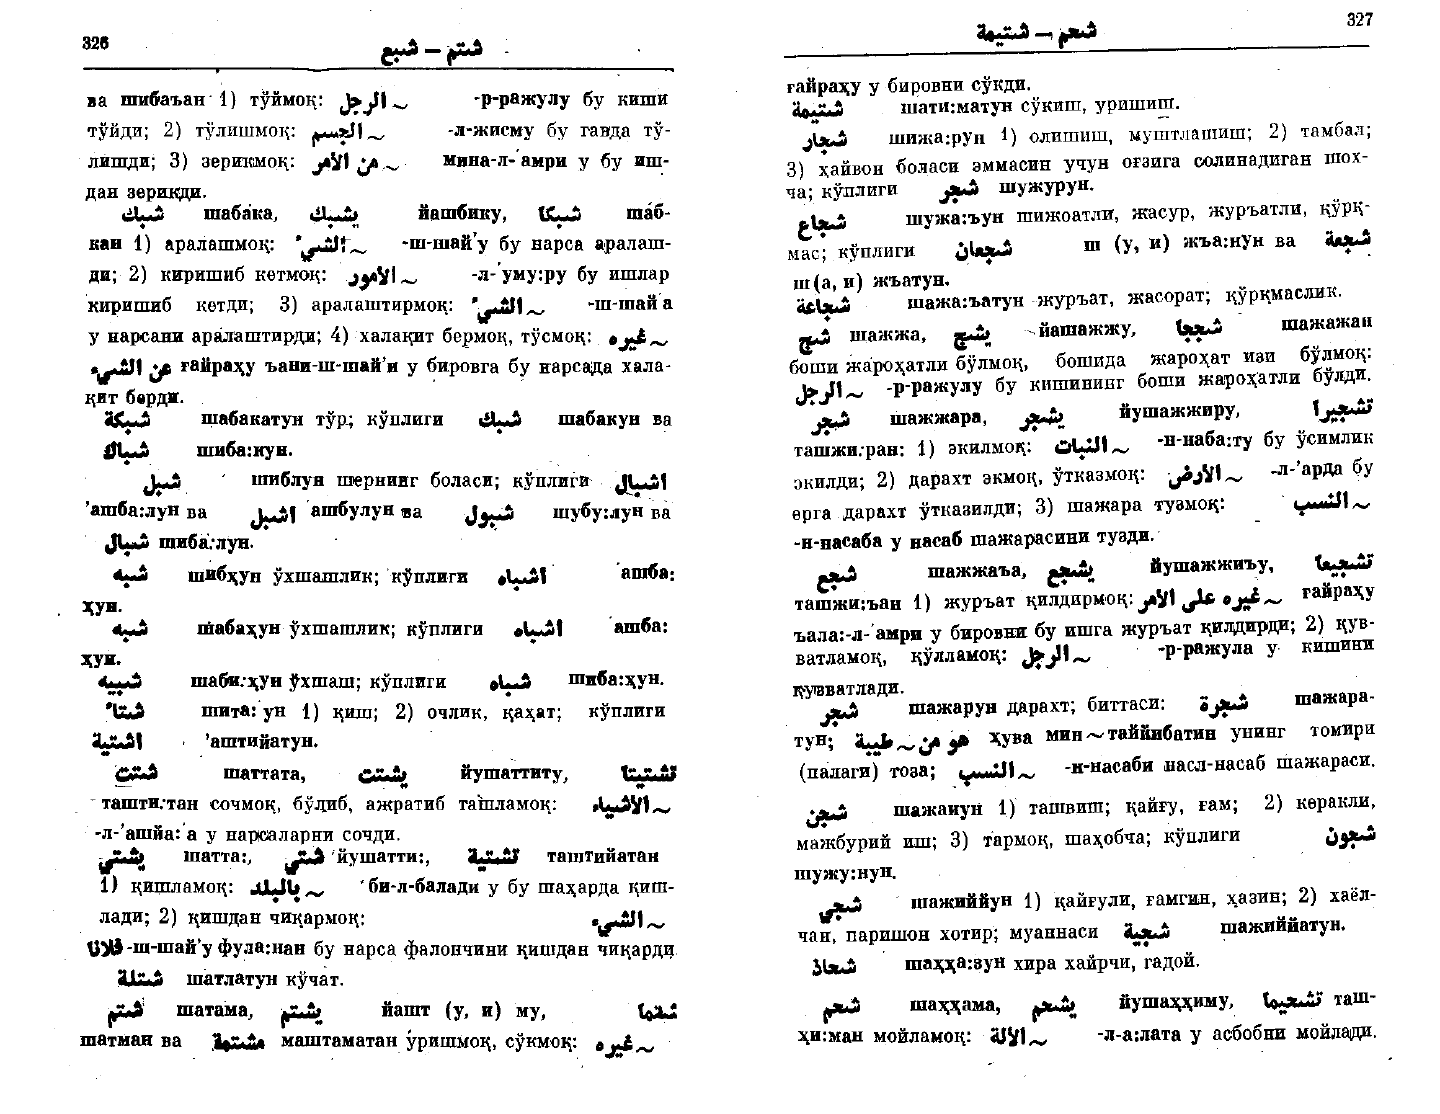 326
شبع — شتم
ва шибаъан 1) тўймоқ: ~ الرجل -р-ражулу бу киши
тўйди; 2) тўлишмоқ: ~ الجسم -л-жисму бу гавда тў-
лишди; 3) зерикмоқ: ~ من الأمر мина-л-'амри у бу иш-
дан зерикди.
شبك шабака, يشبك йашбику, شبكا шаб-
кан 1) аралашмоқ: ~ الشيء -ш-шай'у бу нарса аралаш-
ди; 2) киришиб кетмоқ: ~ الأمور -л-'уму:ру бу ишлар
киришиб кетди; 3) аралаштирмоқ: ~ الشيء -ш-шай'а
у нарсани аралаштирди; 4) халақит бермоқ, тўсмоқ: ~ غيره
عن الشيء ғайраҳу ъани-ш-шай'и у бировга бу нарсада хала-
қит берди.
شبكة шабакатун тўр; кўплиги شبك шабакун ва
شباك шиба:кун.
شبل шиблун шернинг боласи; кўплиги اشبال
'ашба:лун ва اشبل 'ашбулун ва شبول шубу:лун ва
شبال шиба:лун.
شبه шибҳун ўхшашлик; кўплиги اشباه 'ашба:
ҳун.
شبه шабаҳун ўхшашлик; кўплиги اشباه 'ашба:
ҳун.
شبيه шаби:ҳун ўхшаш; кўплиги شباه шиба:ҳун.
شتاء шита:'ун 1) қиш; 2) очлик, қаҳат; кўплиги
اشتية 'аштийатун.
شتت шаттата, يشتت йушаттиту, تشتيتا
ташти:тан сочмоқ, бўлиб, ажратиб ташламоқ: ~ الأشياء
-л-'ашйа:'а у нарсаларни сочди.
شتي шатта:, يشتي йушатти:, تشتية таштийатан
1) қишламоқ: ~ بالبلد би-л-балади у бу шаҳарда қиш-
лади; 2) қишдан чиқармоқ: ~ الشيء
فلانا -ш-шай'у фула:нан бу нарса фалончини қишдан чиқарди
شتلة шатлатун кўчат.
شتم шатама, يشتم йашт (у, и) му, شتما
шатман ва مشتمة маштаматан уришмоқ, сўкмоқ: ~ غيره
327
شتيمة — شحم
ғайраҳу у бировни сўкди.
شتيمة шати:матун сўкиш, уришиш.
شجار шижа:рун 1) олишиш, муштлашиш; 2) тамбал;
3) ҳайвон боласи эммасин учун оғзига солинадиган шох-
ча; кўплиги شجر шужурун.
شجاع шужа:ъун шижоатли, жасур, журъатли, қўрқ-
мас; кўплиги شجعان ш (у, и) жъа:нун ва شجعة
ш (а, и) жъатун.
شجاعة шажа:ъатун журъат, жасорат; қўрқмаслик.
شج шажжа, يشج йашажжу, شججا шажажан
боши жароҳатли бўлмоқ, бошида жароҳат изи бўлмоқ:
~ الرجل -р-ражулу бу кишининг боши жароҳатли бўлди.
شجر шажжара, يشجر йушажжиру, تشجيرا
ташжи:ран: 1) экилмоқ: ~ النبات -н-наба:ту бу ўсимлик
экилди; 2) дарахт экмоқ, ўтказмоқ: ~ الأرض -л-'арда бу
ерга дарахт ўтказилди; 3) шажара тузмоқ: ~ النسب
-н-насаба у насаб шажарасини тузди.
شجع шажжаъа, يشجع йушажжиъу, تشجيعا
ташжи:ъан 1) журъат қилдирмоқ: ~ غيره على الأمر ғайраҳу
ъала:-л-'амри у бировни бу ишга журъат қилдирди; 2) қув-
ватламоқ, қўлламоқ: ~ الرجل -р-ражула у кишини
қувватлади.
شجر шажарун дарахт; биттаси: شجرة шажара-
тун; هو من ~ طيبة ҳува мин ~ таййибатин унинг томири
(палаги) тоза; ~ النسب -н-насаби насл-насаб шажараси.
شجن шажанун 1) ташвиш; қайғу, ғам; 2) керакли,
мажбурий иш; 3) тармоқ, шаҳобча; кўплиги شجون
шужу:нун.
شجي шажиййун 1) қайғули, ғамгин, ҳазин; 2) хаёл-
чан, паришон хотир; муаннаси شجية шажиййатун.
شحاذ шаҳҳа:зун хира хайрчи, гадой.
شحم шаҳҳама, يشحم йушаҳҳиму, تشحيما таш-
ҳи:ман мойламоқ: ~ الآلة -л-а:лата у асбобни мойлади.